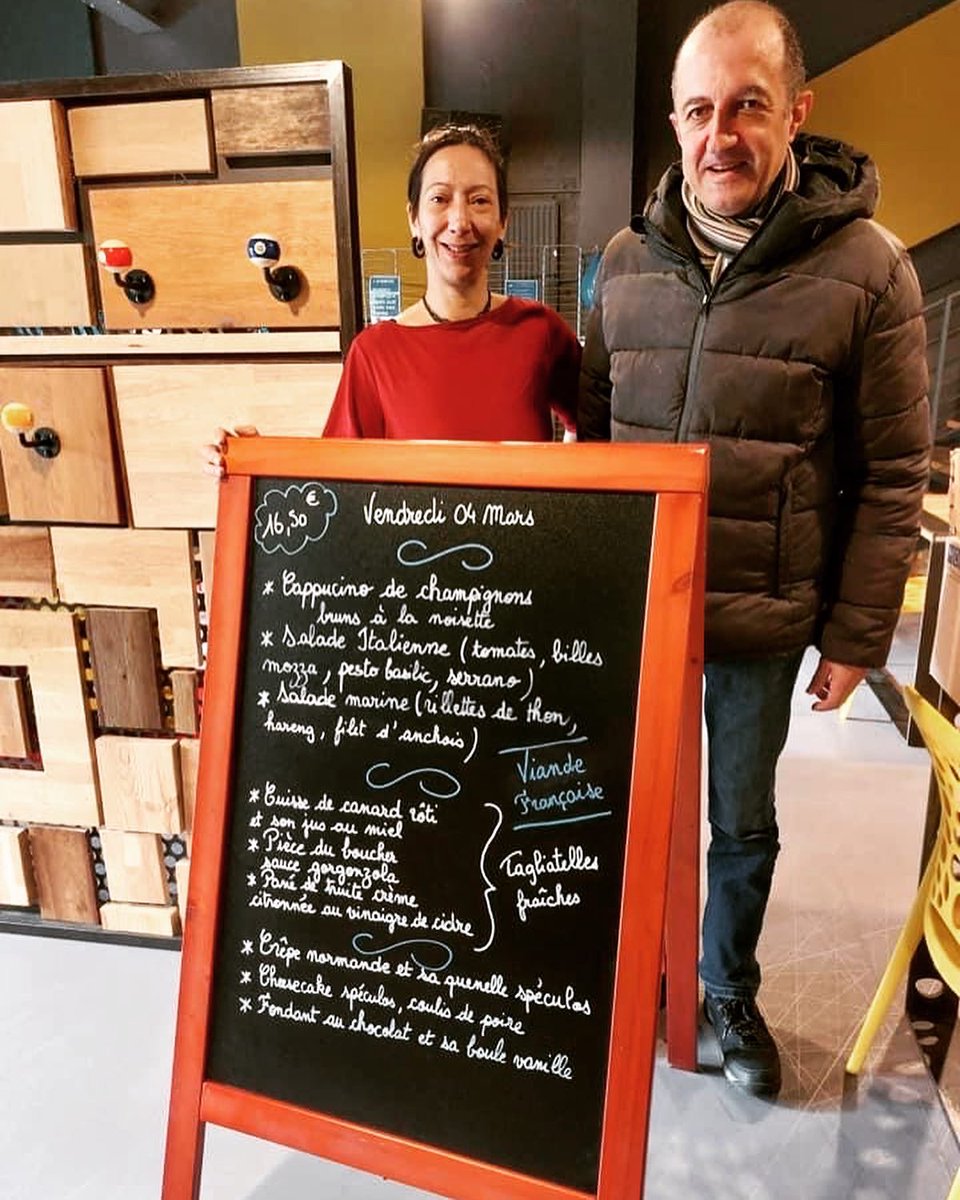 16,50 €
Vendredi 04 Mars
* Cappucino de champignons
bruns à la noisette
* Salade Italienne (tomates, billes
mozza, pesto basilic, serrano)
* Salade marine (rillettes de thon,
hareng, filet d'anchois)
Viande
Française
* Cuisse de canard rôti
et son jus au miel
* Pièce du boucher
sauce gorgonzola
* Pané de truite crème
citronnée au vinaigre de cidre
Tagliatelles
fraîches
* Crêpe normande et sa quenelle spéculos
* Cheesecake spéculos, coulis de poire
* Fondant au chocolat et sa boule vanille